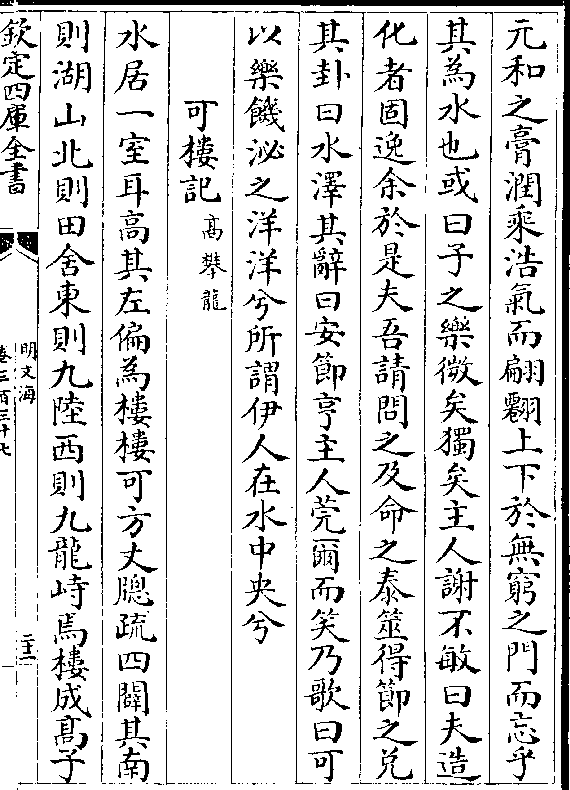 元和之膏潤乘浩氣而翩翾上下於無窮之門而忘乎
其為水也或曰子之樂微矣獨矣主人謝不敏曰夫造
化者固逸余於是夫吾請問之及命之泰筮得節之兌
其卦曰水澤其辭曰安節亨主人莞爾而笑乃歌曰可
以樂饑泌之洋洋兮所謂伊人在水中央兮
可樓記 高攀龍
水居一室耳高其左偏為樓樓可方丈牕疏四闢其南
則湖山北則田舍東則九陸西則九龍峙焉樓成高子
欽定四庫全書
明文海
卷三百三十七
二十二